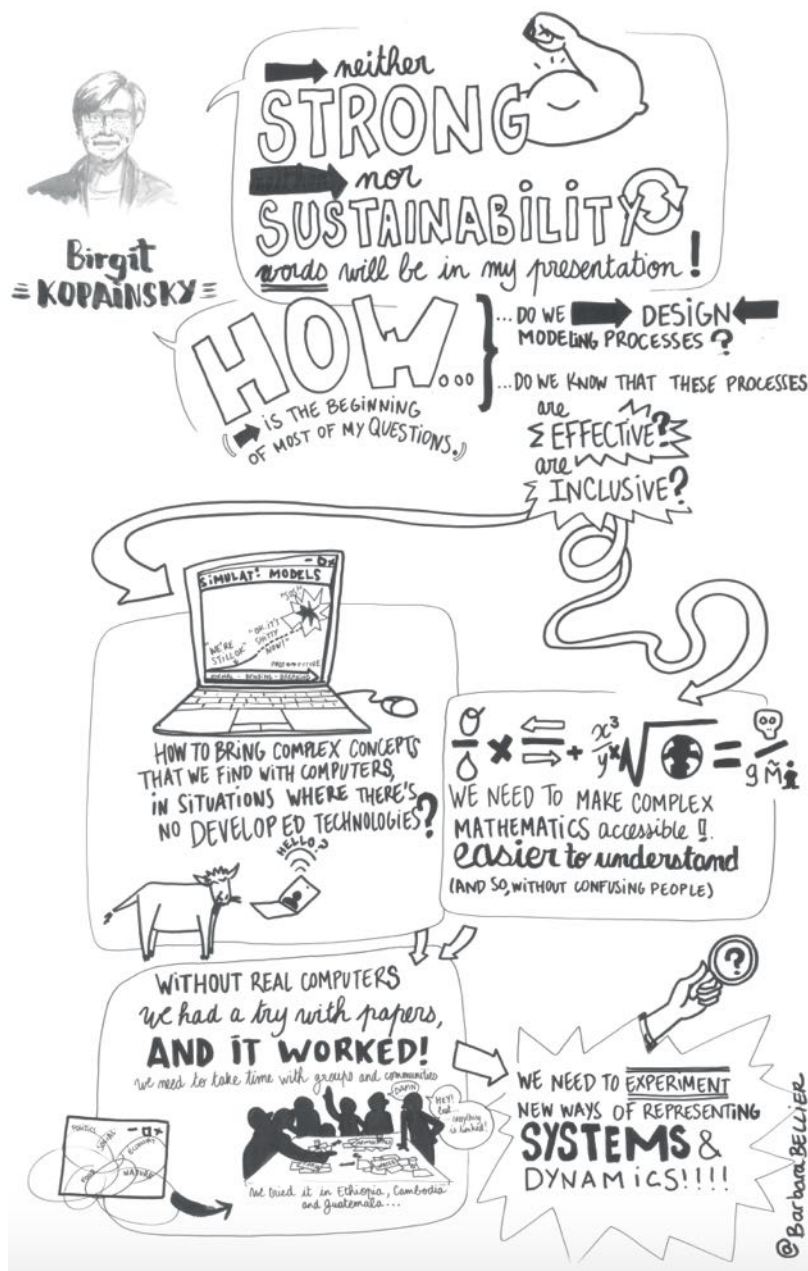 neither
STRONG
nor
SUSTAINABILITY
words will be in my presentation!
Birgit
KOPAINSKY
HOW...
IS THE BEGINNING
OF MOST OF MY QUESTIONS.
...DO WE DESIGN
MODELING PROCESSES?
...DO WE KNOW THAT THESE PROCESSES
are
EFFECTIVE?
are
INCLUSIVE?
SIMULAT: MODELS
"WE'RE
STILL OK"
"OK IT'S
SHITTY
NOW!"
HOW TO BRING COMPLEX CONCEPTS
THAT WE FIND WITH COMPUTERS,
IN SITUATIONS WHERE THERE'S
NO DEVELOPED TECHNOLOGIES?
HELLO?
WE NEED TO MAKE COMPLEX
MATHEMATICS accessible !!
easier to understand
(AND SO, WITHOUT CONFUSING PEOPLE)
WITHOUT REAL COMPUTERS
we had a try with papers,
AND IT WORKED!
we need to take time with groups and communities
DAMN
HEY!
everything
is linked!
POLITICS
SOCIAL
ECONOMY
NATURE
we tried it in Ethiopia, Cambodia
and Guatemala...
?
WE NEED TO EXPERIMENT
NEW WAYS OF REPRESENTING
SYSTEMS &
DYNAMICS!!!!
@BarbaraBELLIER